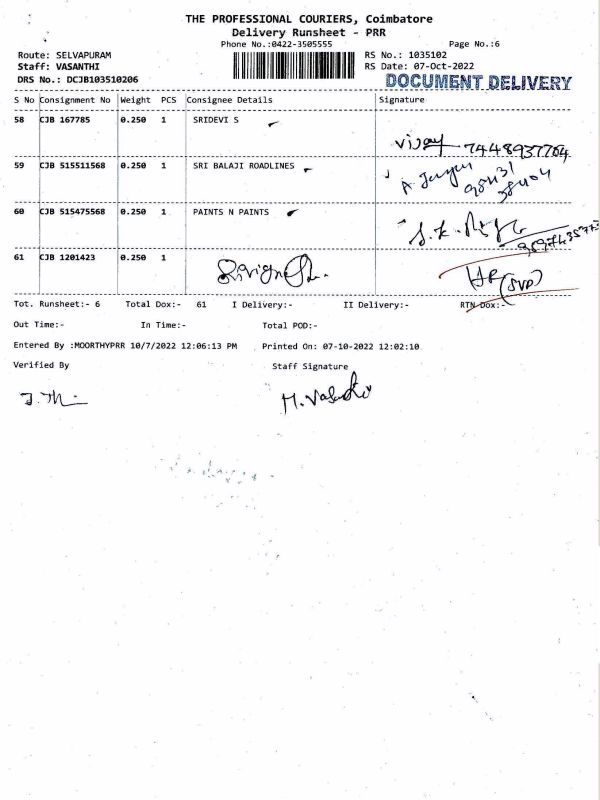 THE PROFESSIONAL COURIERS, Coimbatore
Delivery Runsheet - PRR
Phone No.:0422-3505555 Page No.:6
Route: SELVAPURAM RS No.: 1035102
Staff: VASANTHI RS Date: 07-Oct-2022
DRS No.: DCJB103510206 DOCUMENT DELIVERY
S No Consignment No Weight PCS Consignee Details Signature
58 CJB 167785 0.250 1 SRIDEVI S
Vijay 7448937704
59 CJB 515511568 0.250 1 SRI BALAJI ROADLINES
98431
38404
60 CJB 515475568 0.250 1 PAINTS N PAINTS
61 CJB 1201423 0.250 1
(SVP)
Tot. Runsheet:- 6 Total Dox:- 61 I Delivery:- II Delivery:- RTN Dox:-
Out Time:- In Time:- Total POD:-
Entered By :MOORTHYPRR 10/7/2022 12:06:13 PM Printed On: 07-10-2022 12:02:10
Verified By Staff Signature
M. Vasanthi